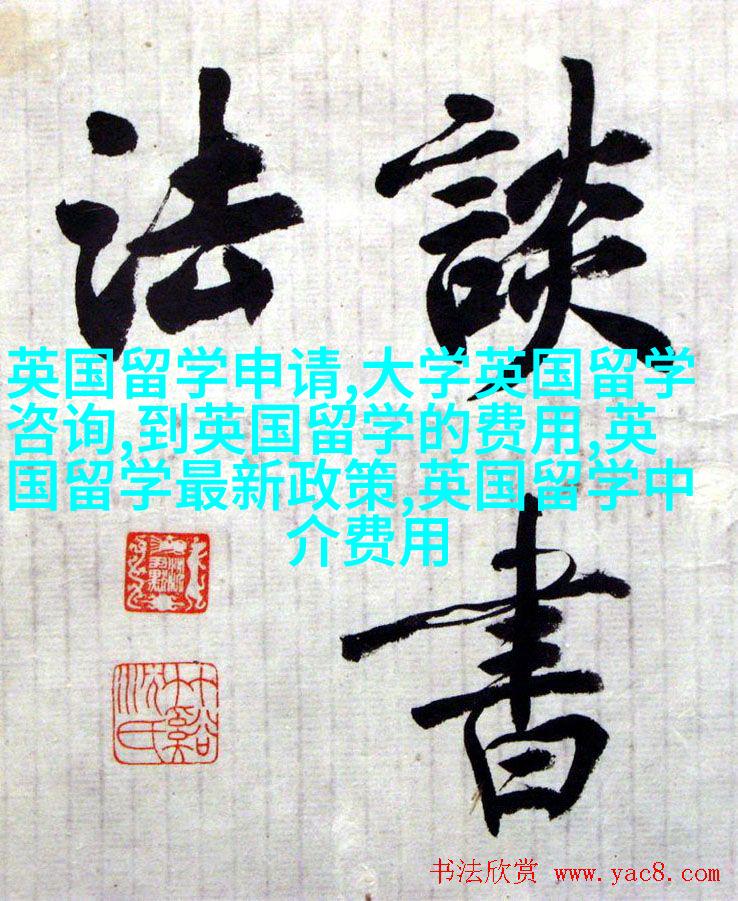 談書
法
英国留学申请,大学英国留学
咨询,到英国留学的费用,英
国留学最新政策,英国留学中
介费用
书法欣赏 www.yac8.com